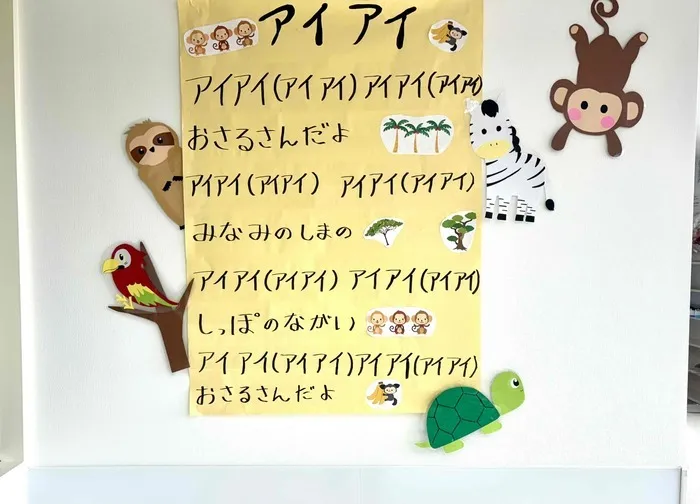 アイアイ
アイアイ(アイアイ)アイアイ(アイアイ)
おさるさんだよ
アイアイ(アイアイ) アイアイ(アイアイ)
みなみのしまの
アイアイ(アイアイ) アイアイ(アイアイ)
しっぽのながい
アイアイ(アイアイ)アイアイ(アイアイ)
おさるさんだよ